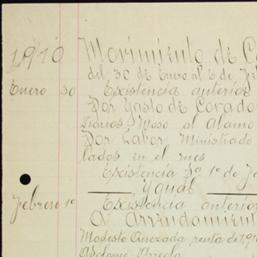 1910 Movimiento de C
del 30 de Enero al 6 de Fe
Enero 30 Existencia anterior
Por Gasto de Corado
al Alamo
Por Labor Ministrado
lados en el mes
Existencia pa 1º de Fe
Ygual
Febrero 1º Existencia anterior
A Arrendamient
Modesto Quezada renta de 191